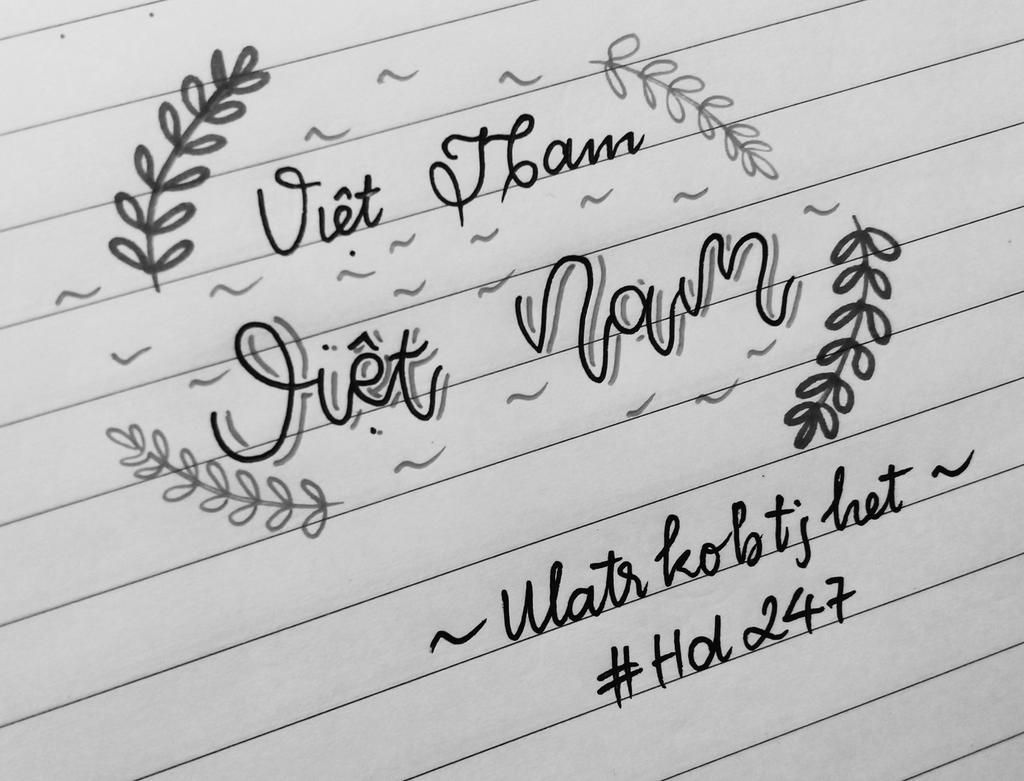 Việt Nam
Việt Nam
~ Ulatr kobtj het ~
#Hd 247